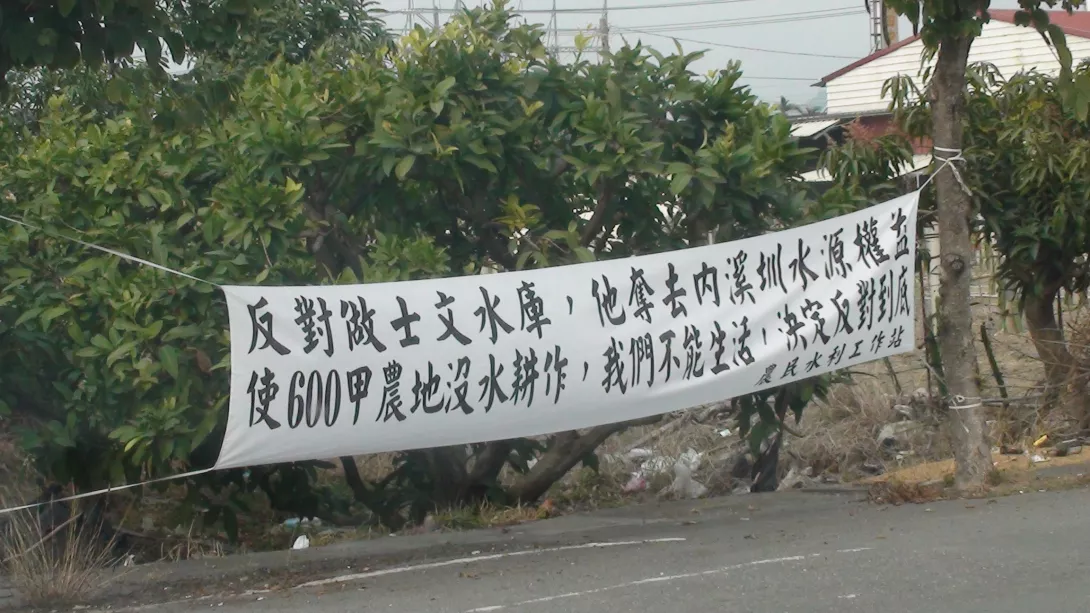 反對做士文水庫，他奪去內溪圳水源權益
使600甲農地沒水耕作，我們不能生活，決定反對到底
農民水利工作站